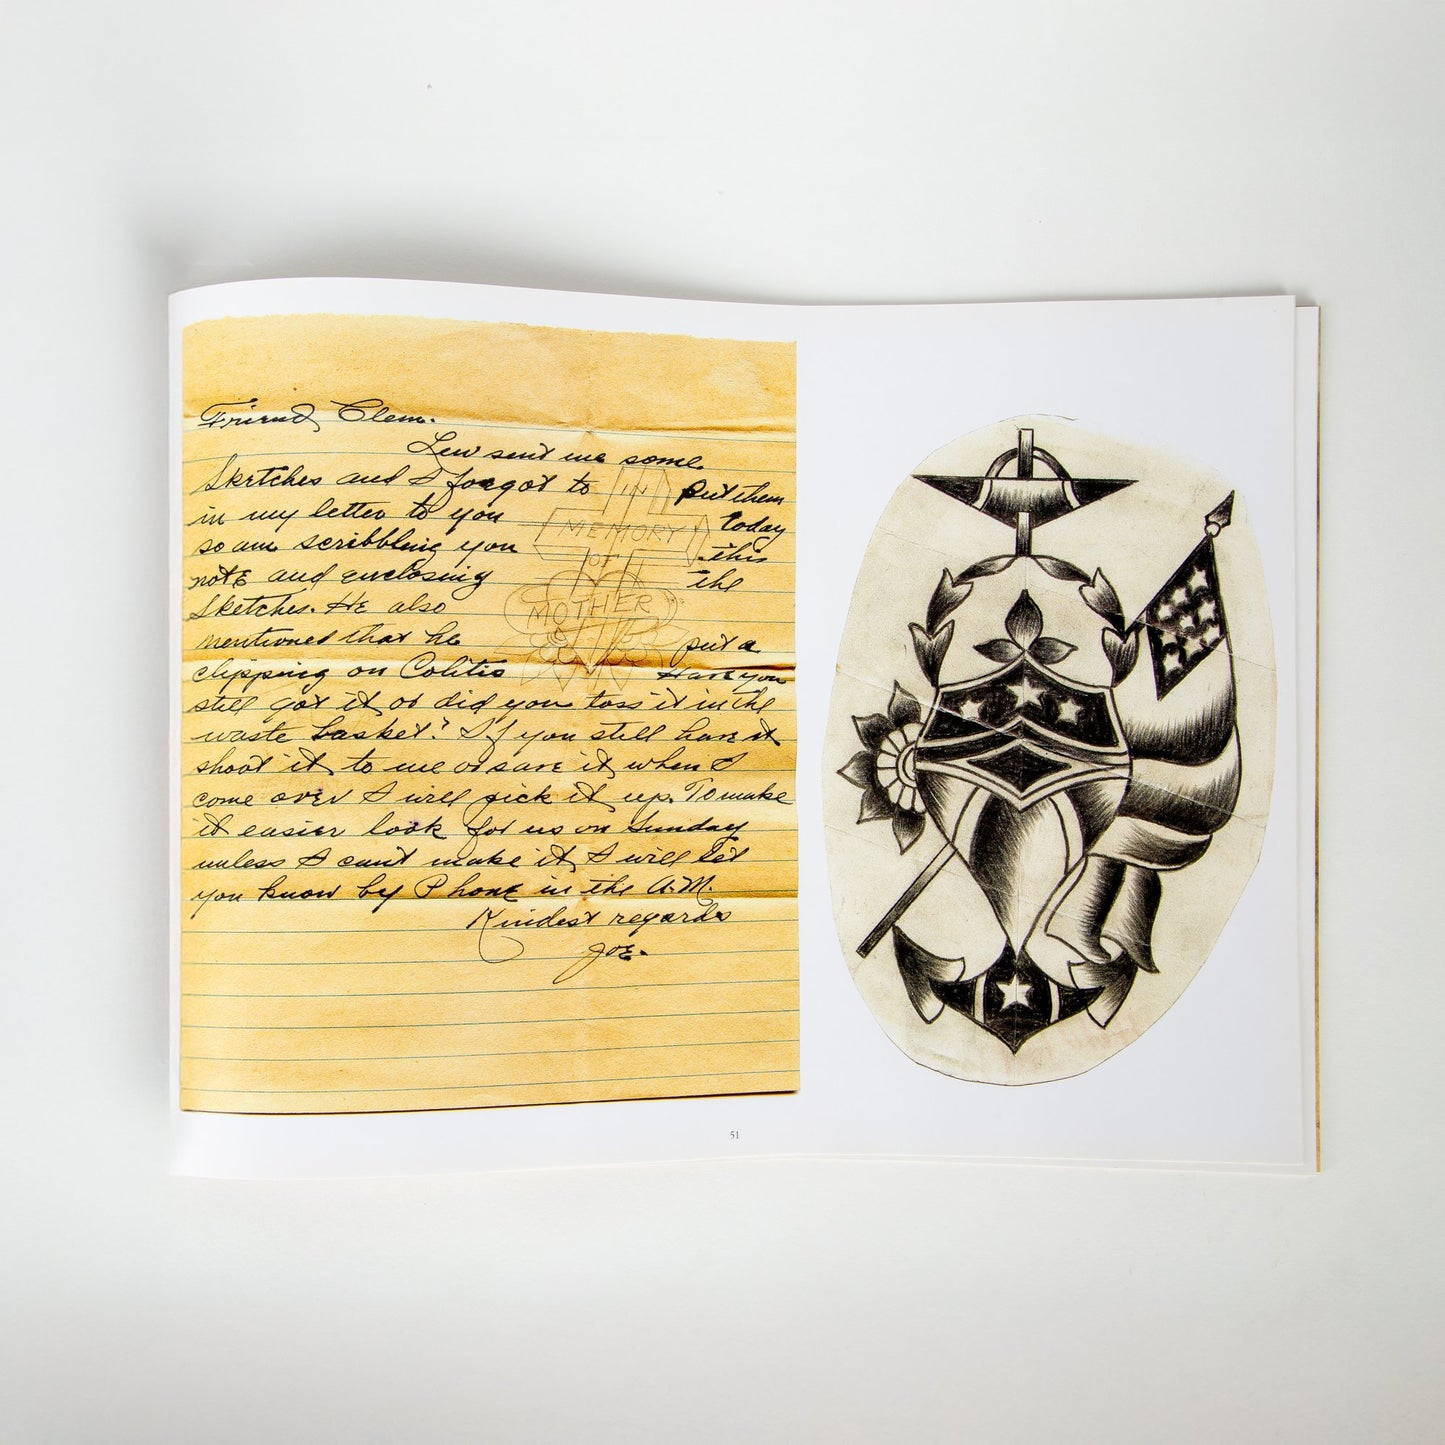 Friend Clem.
Lew sent me some
Sketches and I forgot to put them
in my letter to you today
so am scribbling you this
note and enclosing the
Sketches. He also
mentioned that he put a
clipping on Colitis Have you
still got it or did you toss it in the
waste basket? If you still have it
shoot it to me or save it, when I
come over I will pick it up. To make
it easier look for us on Sunday
unless I can't make it, I will let
you know by Phone in the A.M.
Kindest regards
Joe.
IN
MEMORY
OF
MOTHER
51